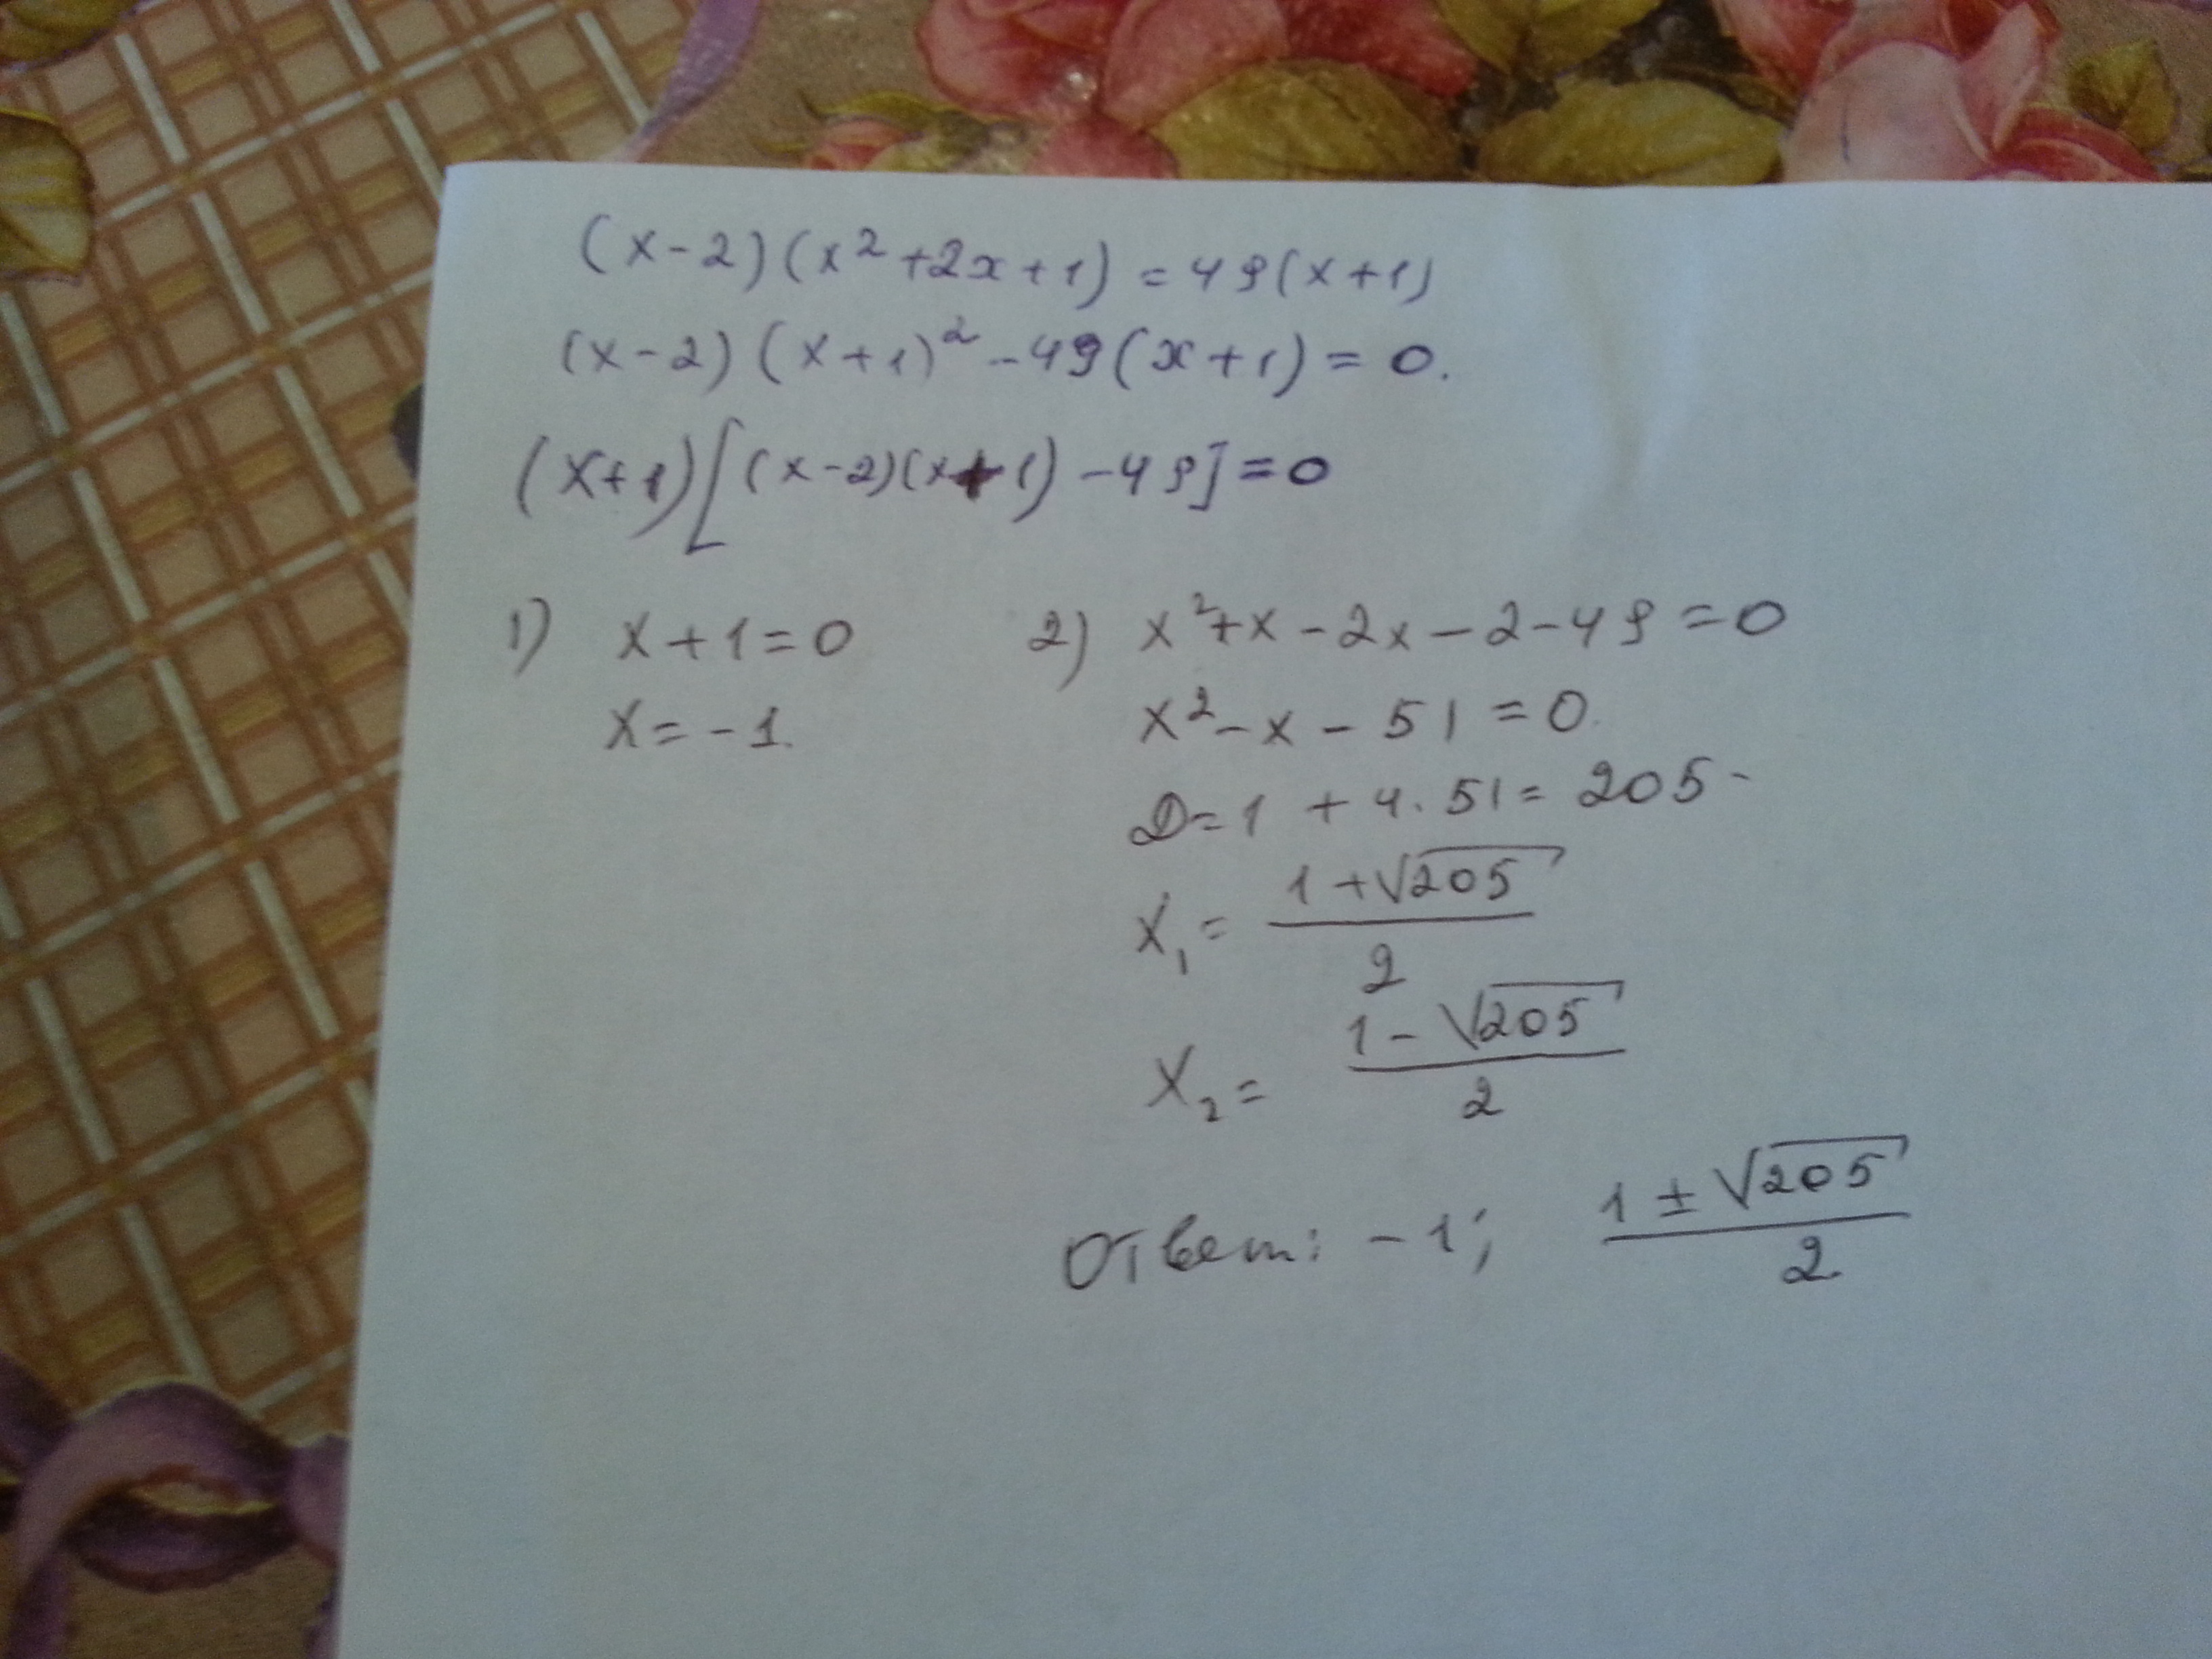 (x-2)(x²+2x+1)=49(x+1)
(x-2)(x+1)²-49(x+1)=0.
(x+1)[(x-2)(x+1)-49]=0
1) x+1=0
x=-1.
2) x²+x-2x-2-49=0
x²-x-51=0.
D=1+4·51=205-
x₁=(1+√205)/2
x₂=(1-√205)/2
Ответ: -1; (1±√205)/2